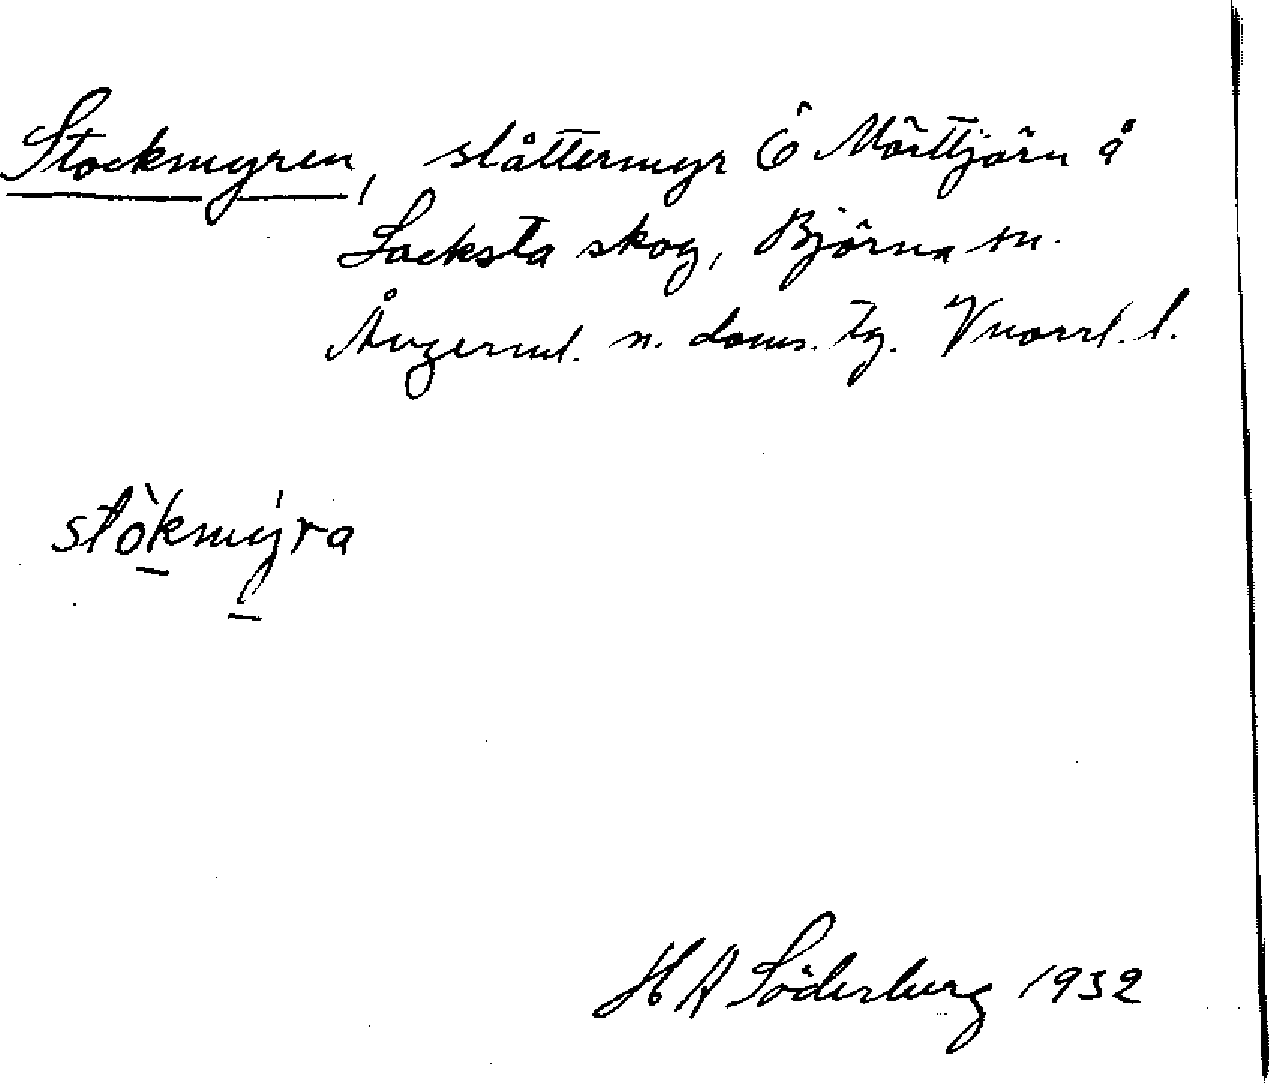 Stockmyren, slåttermyr Ö Mörttjärn å
Locksta skog, Björna sn.
Ångerml. n. doms. tg. Vnorrl. l.
stòkmýra
H A Söderberg 1932